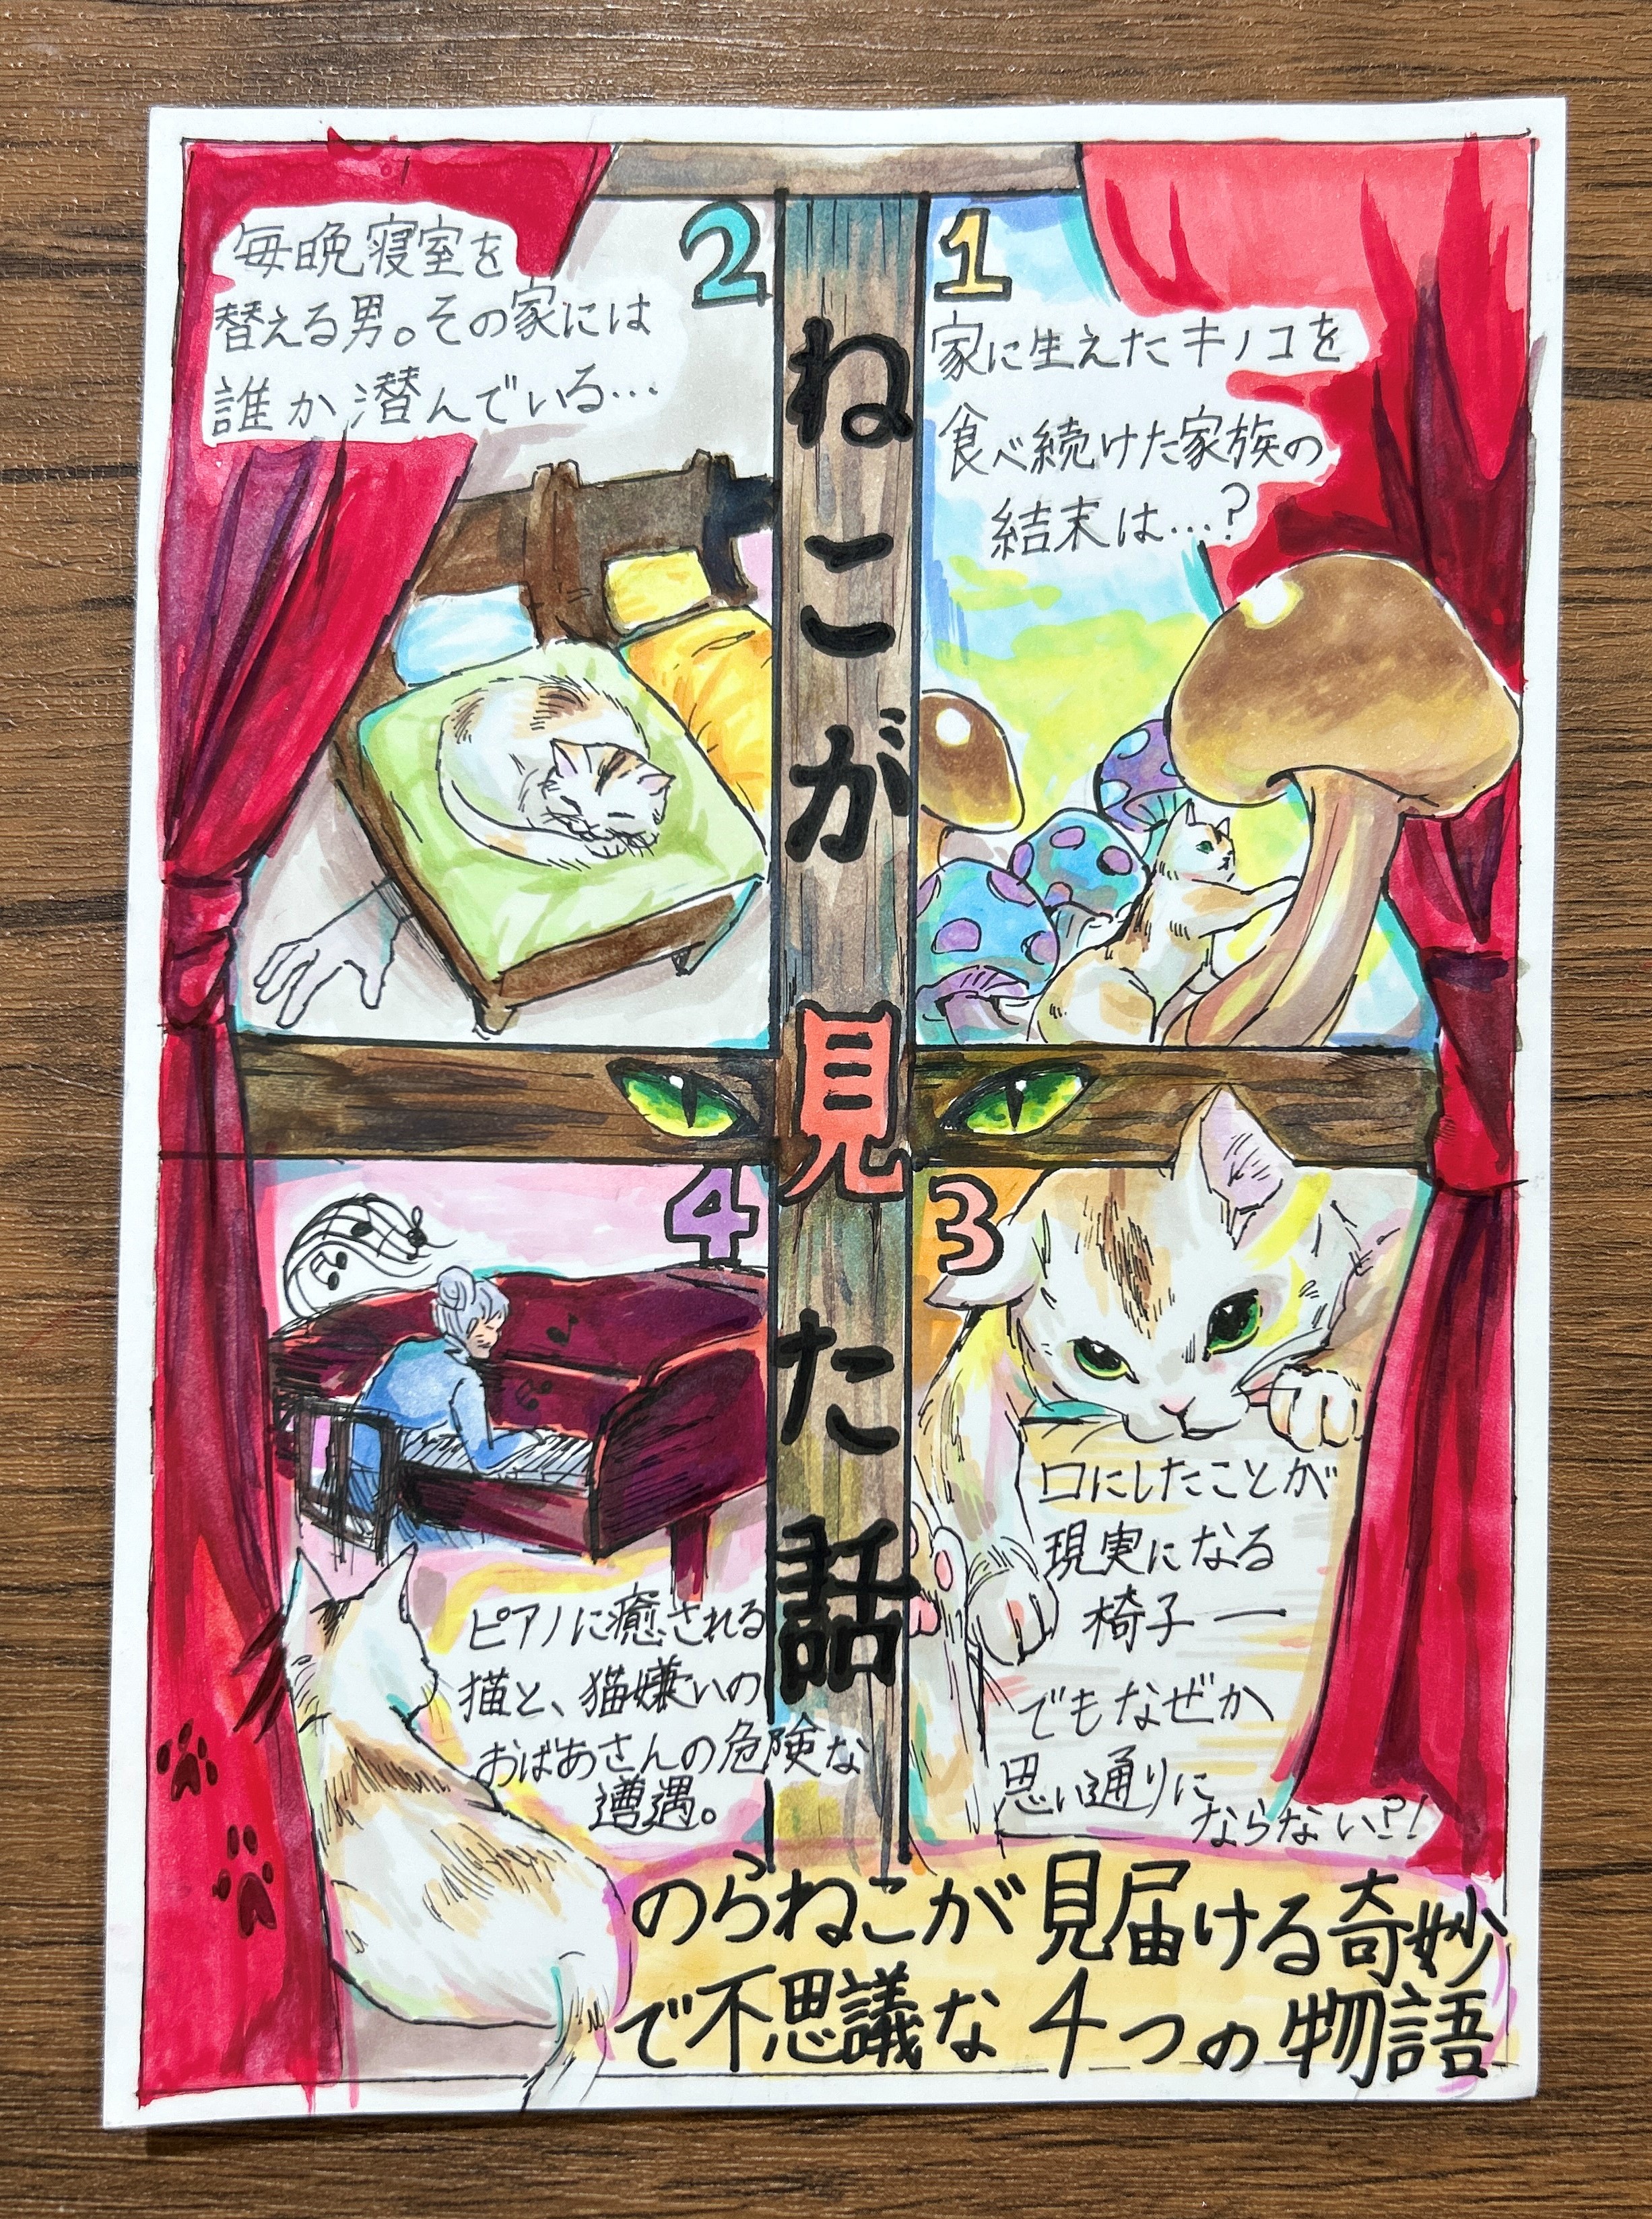 ねこが見た話
1
家に生えたキノコを
食べ続けた家族の
結末は…?
2
毎晩寝室を
替える男。その家には
誰か潜んでいる…
3
口にしたことが
現実になる
椅子ー
でもなぜか
思い通りに
ならない?!
4
ピアノに癒される
猫と、猫嫌いの
おばあさんの危険な
遭遇。
のらねこが見届ける奇妙
で不思議な4つの物語